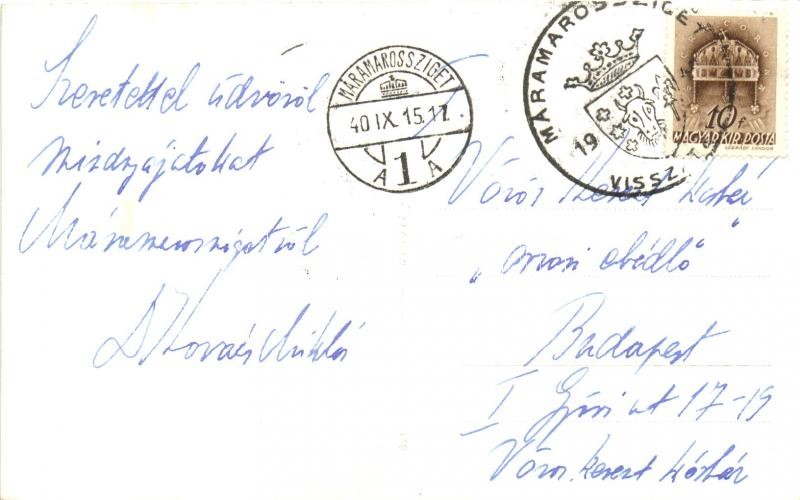 Szeretettel üdvözöl
mindnyájatokat
Máramarosszigetről
Dr Kovács Miklós
MÁRAMAROSSZIGET
40 IX. 15.17
A 1 A
MÁRAMAROSSZIGE
19
VISSZ
10f
MAGYAR KIR. POSTA
LÉGRÁDY SÁNDOR
Vörös Kereszt kórház
„orvosi ebédlő"
Budapest
I Győri út 17-19
Vörös kereszt kórház